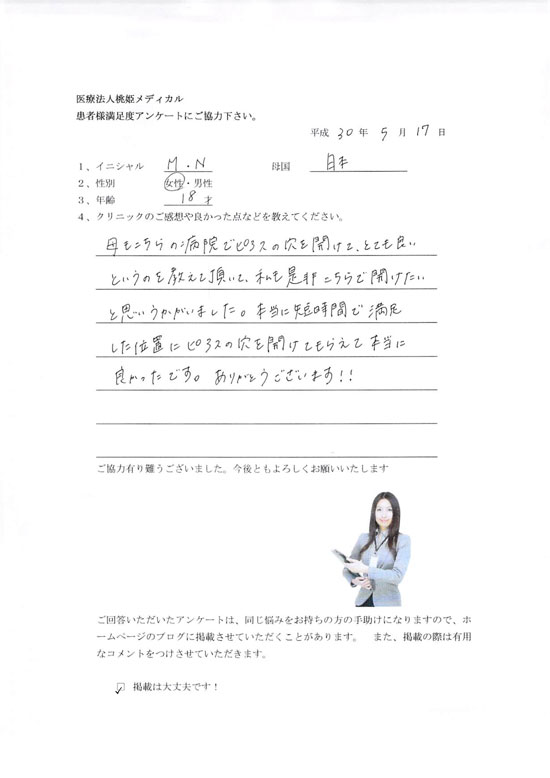 医療法人桃姫メディカル
患者様満足度アンケートにご協力下さい。
平成 30 年 5 月 17 日
1、イニシャル M.N 母国 日本
2、性別 女性・男性
3、年齢 18 才
4、クリニックのご感想や良かった点などを教えてください。
母もこちらの病院でピアスの穴を開けて、とても良い
というのを教えて頂いて、私も是非こちらで開けたい
と思いうかがいました。本当に短時間で満足
した位置にピアスの穴を開けてもらえて本当に
良かったです。ありがとうございます!!
ご協力有り難うございました。今後ともよろしくお願いいたします
ご回答いただいたアンケートは、同じ悩みをお持ちの方の手助けになりますので、ホ
ームページのブログに掲載させていただくことがあります。 また、掲載の際は有用
なコメントをつけさせていただきます。
☑ 掲載は大丈夫です!